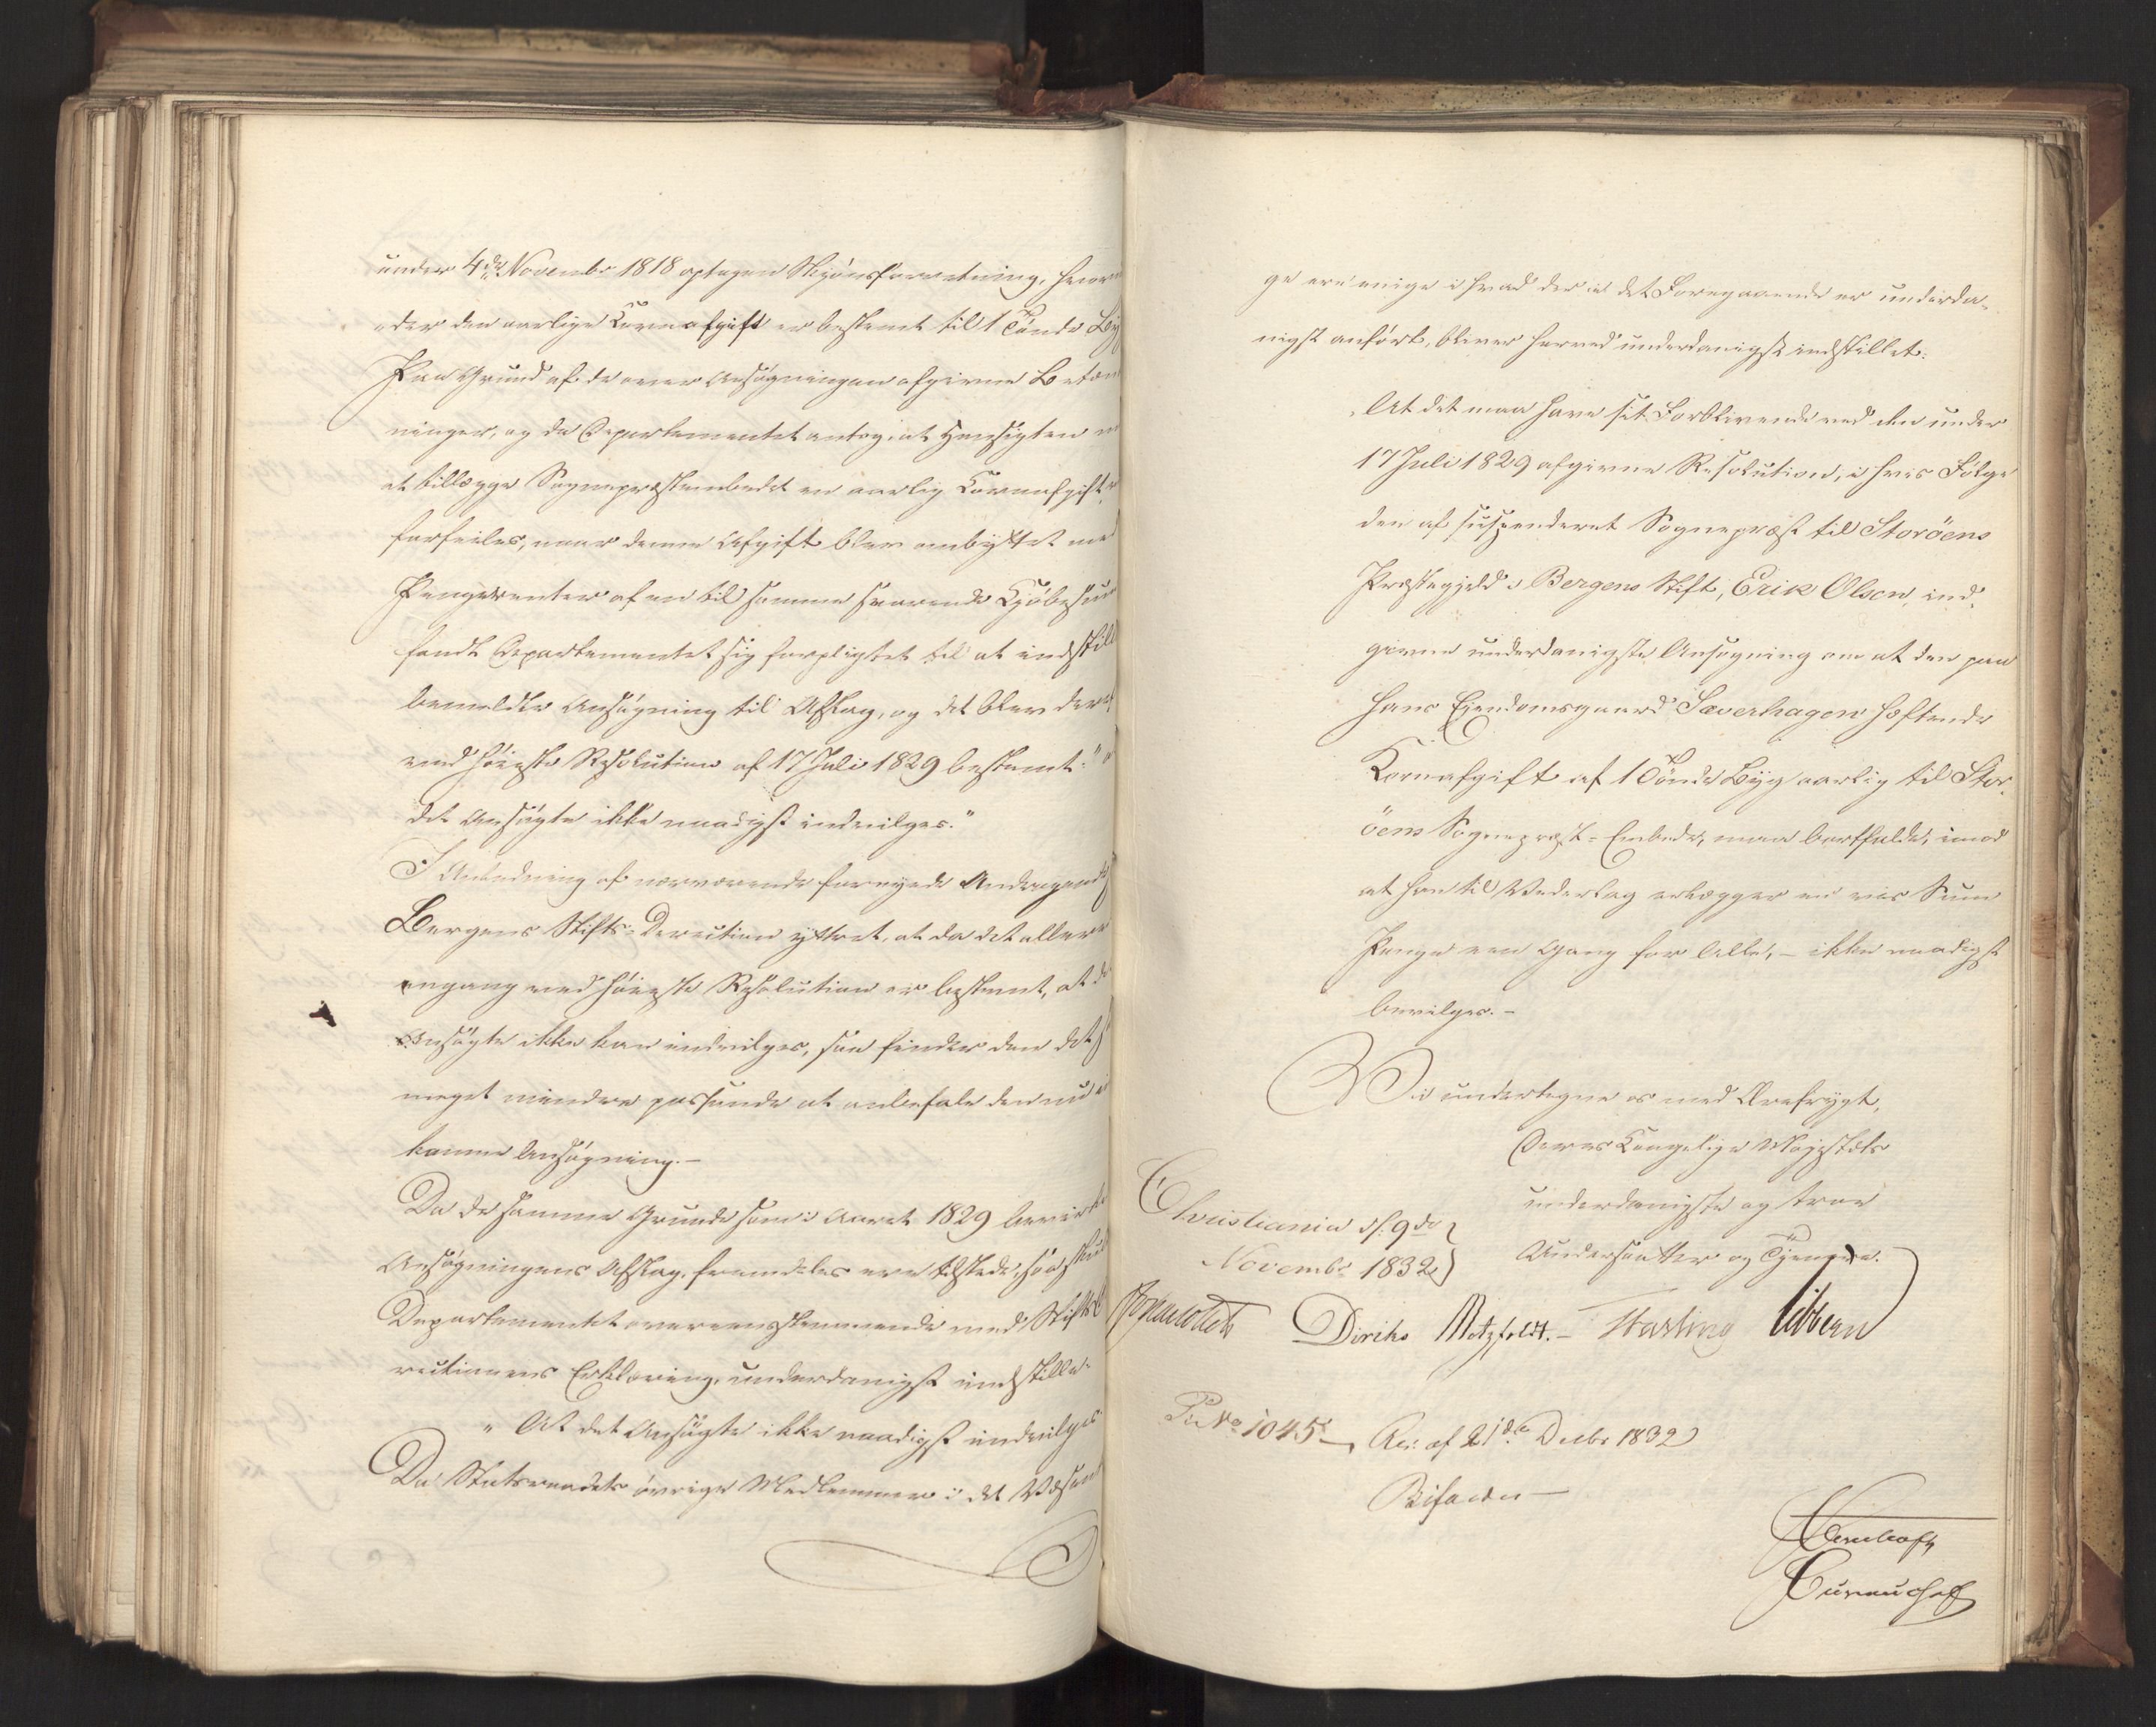 under 4de Novembr 1818 optagen Skjönsforretning, hvor
der den aarlige Kornafgift er bestemt til 1 Tönde Byg
Paa Grund af de over Ansögningen afgivne Betænk
ninger, og da Departementet antog, at Hensigten
at tillægge Sognepræstembedet en aarlig Kornafgift
forfeiles, naar denne Afgift blev ombyttet med
Pengerenter af en til samme svarende Kjöbesum
fandt Departementet sig forpligtet til at indstille
bemeldte Ansögning til Afslag, og det blev der
ved höieste Resolution af 17 Juli 1829 bestemt: "
det Ansögte ikke naadigst indvilges."
I Anledning af nærværende fornyede Andragende
Bergens Stifts-Direction yttret, at da det allere
engang ved höieste Resolution er bestemt, at de
Ansögte ikke kan indvilges, saa finder den det
meget mindre passende at anbefale den nu
komne Ansögning.-
Da de samme Grunde som i Aaret 1829 bevirke
Ansögningens Afslag, fremdeles ere tilstede, saa skul
Departementet overeensstemmende med Stifts
rectionens Erklæring, underdanigst indstille
" At det Ansögte ikke naadigst indvilges
Da Statsraadets övrige Medlemmer i det Væsent
ge ere enige i hvad der i det Foregaaende er underda-
nigst anfört, bliver herved underdanigst indstillet:
At det maa have sit Forblivende ved den under
17 Juli 1829 afgivne Resolution, i hvis Fölge
den af suspenderet Sognepræst til Storöens
Præstegjeld i Bergens Stift, Erik Olsen, ind-
givne underdanigste Ansögning om at den paa
hans Eiendomsgaard Sæverhagen hæftende
Kornafgift af 1 Tönde Byg aarlig til Stor-
öens Sognepræst-Embede, maa bortfalde, imod
at han til Vederlag erlægger en vis Sum
Penge een Gang for Alle, - ikke naadigst
bevilges.-
Vi undertegne os med Ærefrygt,
Deres Kongelige Majestæts
underdanigste og troe
Undersaatter og Tjenere.
Christiania d: 9de
Novembr 1832
Diriks Motzfeldt.- Harling Sibbern
No 1045 Res: af 21de Decbr 1832
Bifaldes-